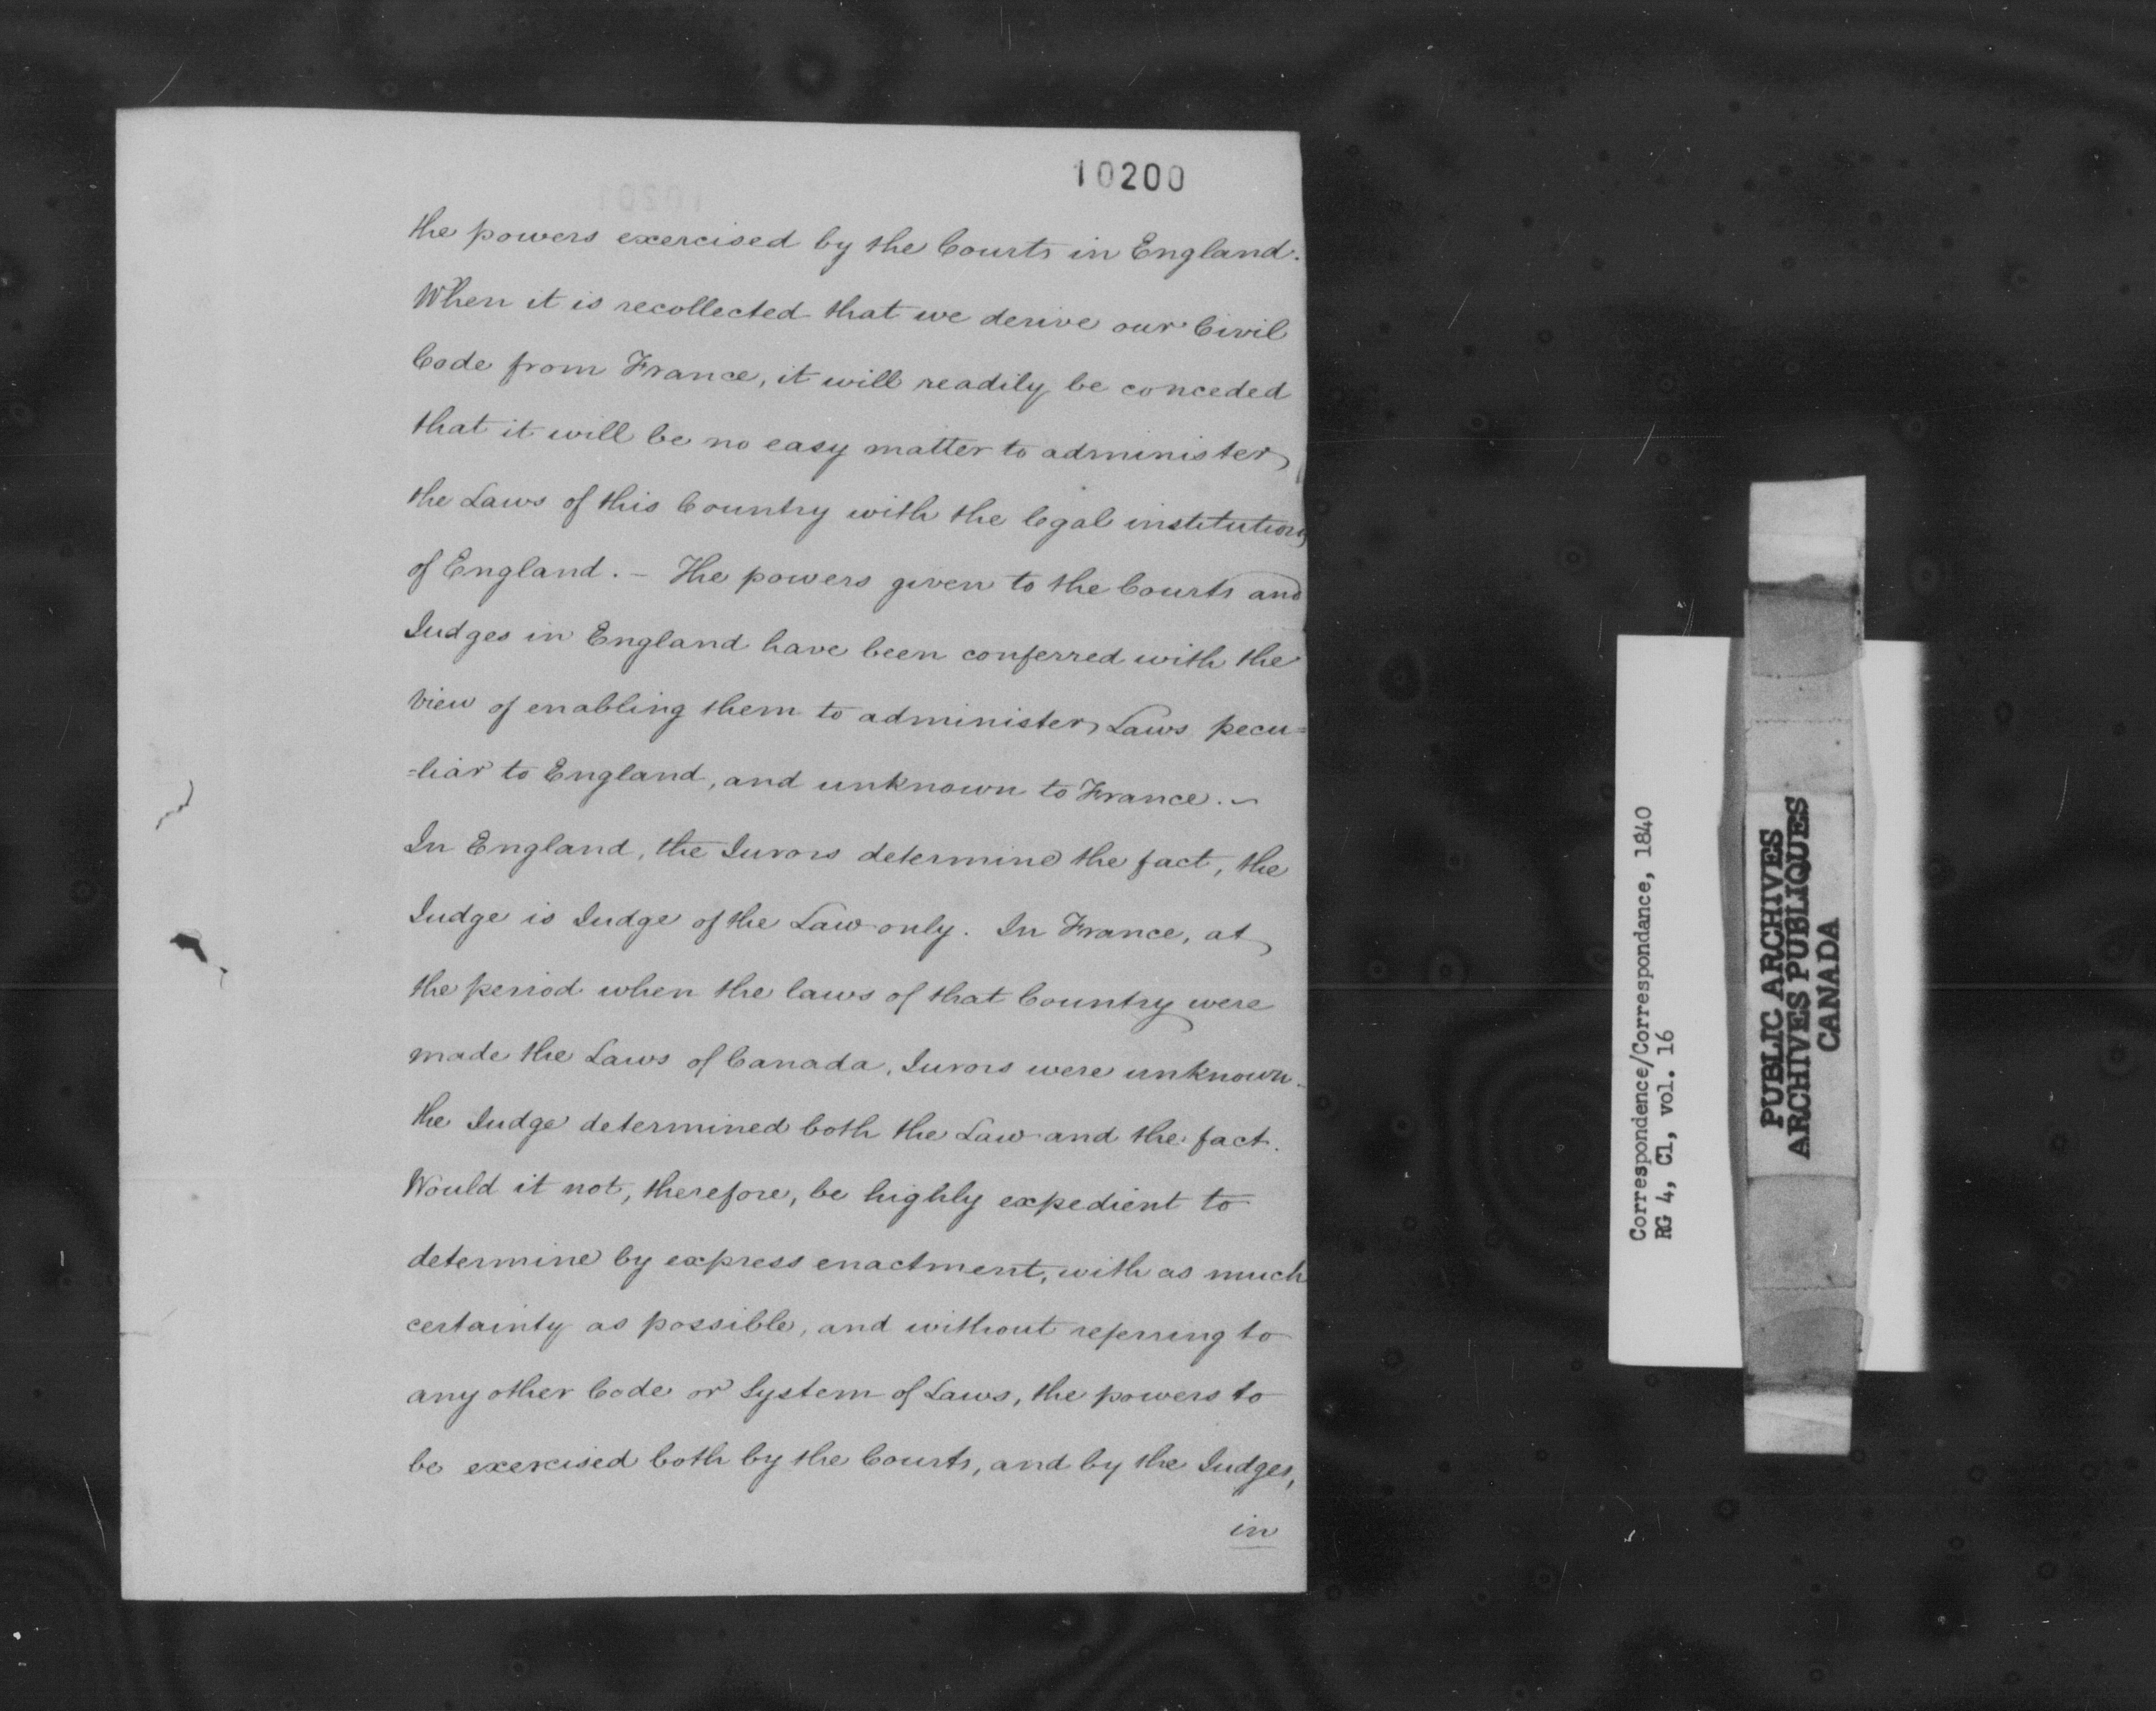 10200
the powers exercised by the Courts in England.
When it is recollected that we derive our Civil
Code from France, it will readily be conceded
that it will be no easy matter to administer
the Laws of this Country with the legal institutions
of England. – The powers given to the Courts and
Judges in England have been conferred with the
view of enabling them to administer Laws pecu=
=liar to England, and unknown to France. –
In England, the Jurors determine the fact, the
Judge is Judge of the Law only. In France, at
the period when the laws of that Country were
made the Laws of Canada, Jurors were unknown.
the Judge determined both the Law and the fact.
Would it not, therefore, be highly expedient to
determine by express enactment, with as much
certainty as possible, and without referring to
any other Code or System of Laws, the powers to
be exercised both by the Courts, and by the Judges,
in
Correspondence/Correspondance, 1840
RG 4, C1, vol. 16
PUBLIC ARCHIVES
ARCHIVES PUBLIQUES
CANADA